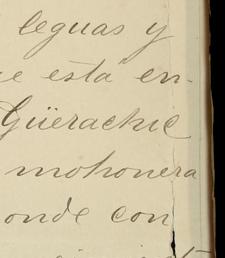 leguas y
e esta en-
Güerachic
mohonera
onde con